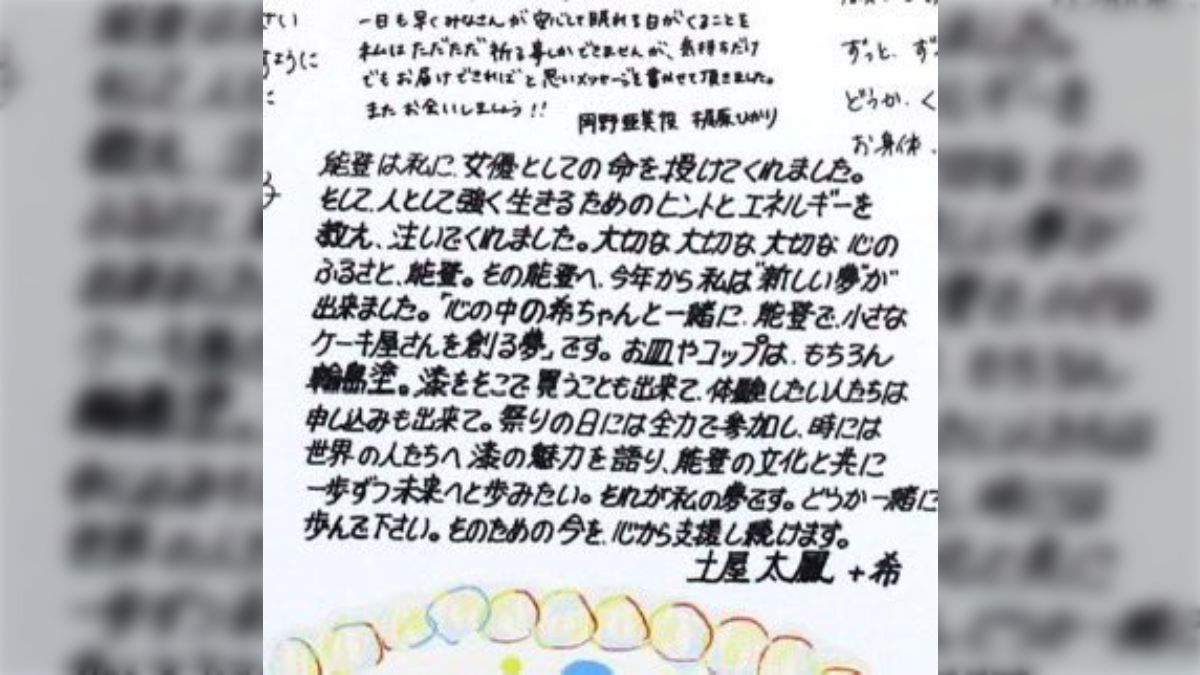 さい
ように
に
一日も早くみなさんが安心して眠れる日がくることを
私はただただ祈る事しかできませんが、気持ちだけ
でもお届けできればと思いメッセージを書かせて頂きました。
またお会いしましょう!!
岡野亜美役 梶原ひかり
ずっと、ず
どうか、く
お身体、
能登は私に、女優としての命を、授けてくれました。
そして、人として強く生きるためのヒントとエネルギーを
教え、注いでくれました。大切な、大切な、大切な心の
ふるさと、能登。その能登へ、今年から私は“新しい夢”が
出来ました。「心の中の希ちゃんと一緒に、能登で、小さな
ケーキ屋さんを創る夢」です。お皿やコップは、もちろん
輪島塗。漆をそこで買うことも出来て、体験したい人たちは
申し込みも出来て。祭りの日には全力で参加し、時には
世界の人たちへ漆の魅力を語り、能登の文化と共に
一歩ずつ未来へと歩みたい。それが私の夢です。どうか一緒に
歩んで下さい。そのための今を、心から支援し続けます。
土屋太鳳 + 希